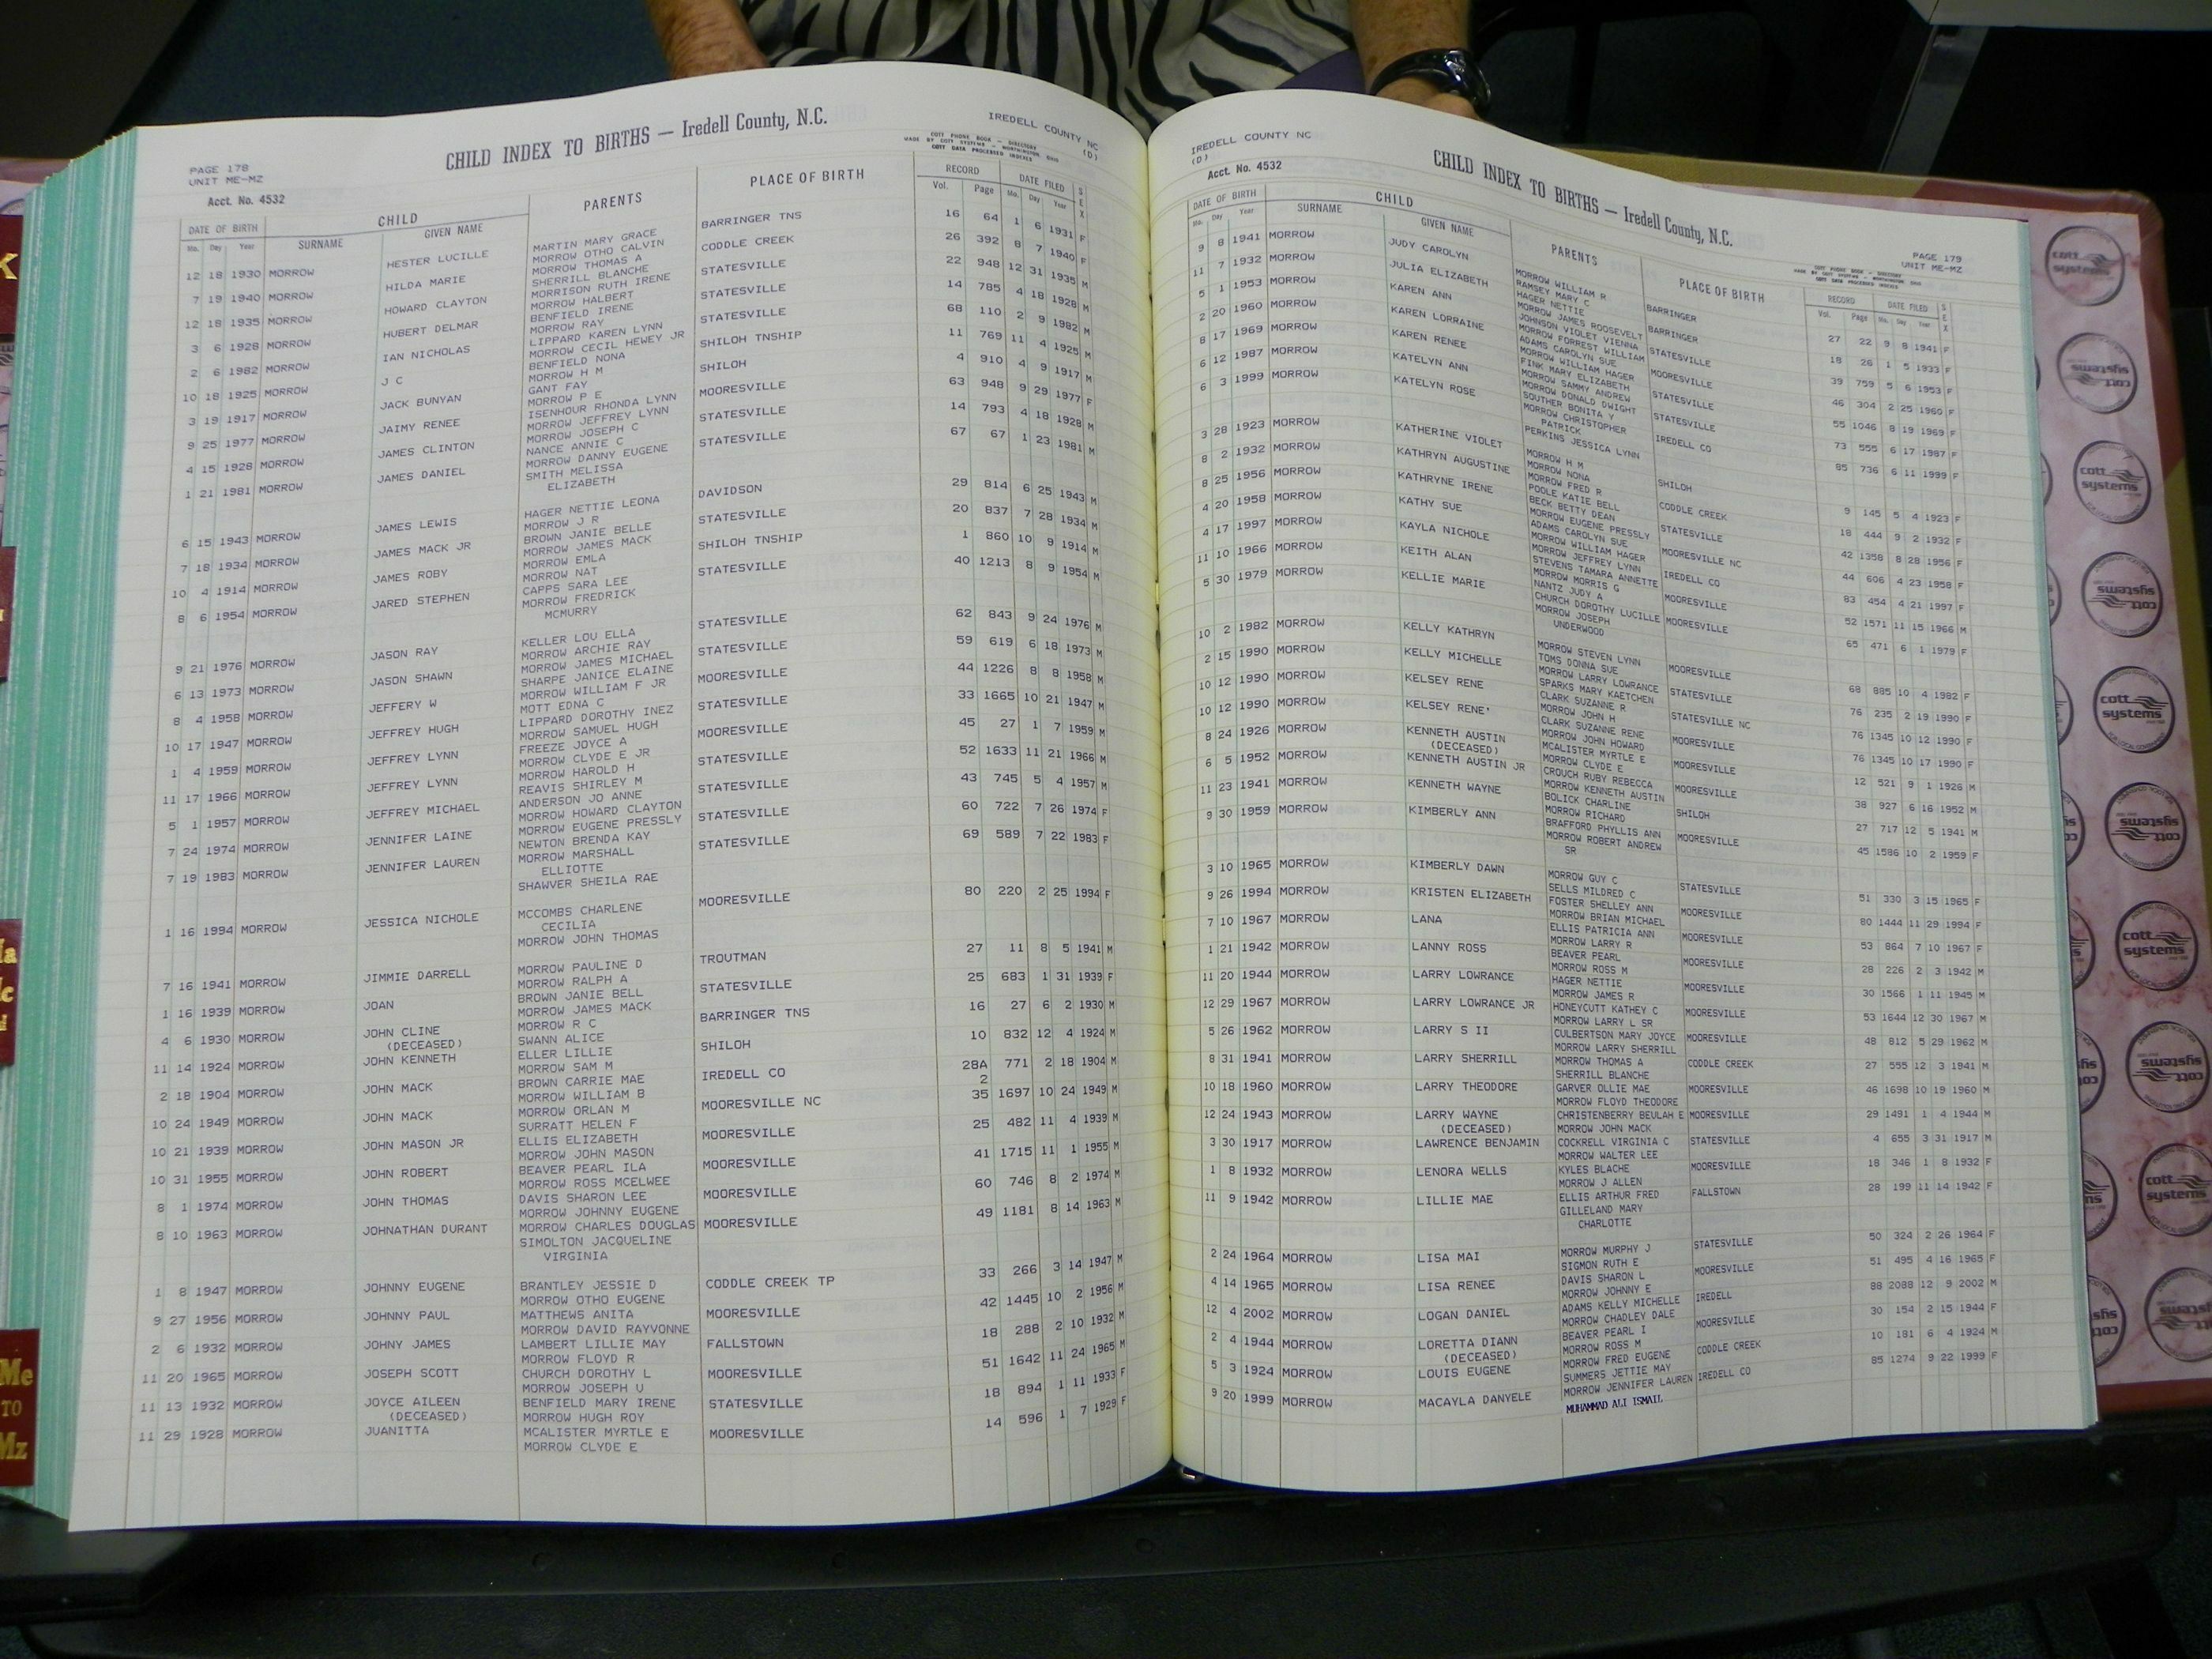 CHILD INDEX TO BIRTHS — Iredell County, N.C.
IREDELL COUNTY NC
(D)
COTT PHONE BOOK - DIRECTORY
MADE BY COTT SYSTEMS - WORTHINGTON, OHIO
COTT DATA PROCESSED INDEXES
PAGE 178
UNIT ME-MZ
Acct. No. 4532
DATE OF BIRTH CHILD PARENTS PLACE OF BIRTH RECORD DATE FILED SEX
Mo. Day Year SURNAME GIVEN NAME Vol. Page Mo. Day Year
12 18 1930 MORROW HESTER LUCILLE MARTIN MARY GRACE BARRINGER TNS 16 64 1 6 1931 F
MORROW OTHO CALVIN
7 19 1940 MORROW HILDA MARIE MORROW THOMAS A CODDLE CREEK 26 392 8 7 1940 F
SHERRILL BLANCHE
12 18 1935 MORROW HOWARD CLAYTON MORRISON RUTH IRENE STATESVILLE 22 948 12 31 1935 M
MORROW HALBERT
3 6 1928 MORROW HUBERT DELMAR BENFIELD IRENE STATESVILLE 14 785 4 18 1928 M
MORROW RAY
2 6 1982 MORROW IAN NICHOLAS LIPPARD KAREN LYNN STATESVILLE 68 110 2 9 1982 M
MORROW CECIL HEWEY JR
10 18 1925 MORROW J C BENFIELD NONA SHILOH TNSHIP 11 769 11 4 1925 M
MORROW H M
3 19 1917 MORROW JACK BUNYAN GANT FAY SHILOH 4 910 4 9 1917 M
MORROW P E
9 25 1977 MORROW JAIMY RENEE ISENHOUR RHONDA LYNN MOORESVILLE 63 948 9 29 1977 F
MORROW JEFFREY LYNN
4 15 1928 MORROW JAMES CLINTON MORROW JOSEPH C STATESVILLE 14 793 4 18 1928 M
NANCE ANNIE C
1 21 1981 MORROW JAMES DANIEL MORROW DANNY EUGENE STATESVILLE 67 67 1 23 1981 M
SMITH MELISSA
ELIZABETH
6 15 1943 MORROW JAMES LEWIS HAGER NETTIE LEONA DAVIDSON 29 814 6 25 1943 M
MORROW J R
7 18 1934 MORROW JAMES MACK JR BROWN JANIE BELLE STATESVILLE 20 837 7 28 1934 M
MORROW JAMES MACK
10 4 1914 MORROW JAMES ROBY MORROW EMLA SHILOH TNSHIP 1 860 10 9 1914 M
MORROW NAT
8 6 1954 MORROW JARED STEPHEN CAPPS SARA LEE STATESVILLE 40 1213 8 9 1954 M
MORROW FREDRICK
MCMURRY
9 21 1976 MORROW JASON RAY KELLER LOU ELLA STATESVILLE 62 843 9 24 1976 M
MORROW ARCHIE RAY
6 13 1973 MORROW JASON SHAWN MORROW JAMES MICHAEL STATESVILLE 59 619 6 18 1973 M
SHARPE JANICE ELAINE
8 4 1958 MORROW JEFFERY W MORROW WILLIAM F JR MOORESVILLE 44 1226 8 8 1958 M
MOTT EDNA C
10 17 1947 MORROW JEFFREY HUGH LIPPARD DOROTHY INEZ STATESVILLE 33 1665 10 21 1947 M
MORROW SAMUEL HUGH
1 4 1959 MORROW JEFFREY LYNN FREEZE JOYCE A MOORESVILLE 45 27 1 7 1959 M
MORROW CLYDE E JR
11 17 1966 MORROW JEFFREY LYNN MORROW HAROLD H STATESVILLE 52 1633 11 21 1966 M
REAVIS SHIRLEY M
5 1 1957 MORROW JEFFREY MICHAEL ANDERSON JO ANNE STATESVILLE 43 745 5 4 1957 M
MORROW HOWARD CLAYTON
7 24 1974 MORROW JENNIFER LAINE MORROW EUGENE PRESSLY STATESVILLE 60 722 7 26 1974 F
NEWTON BRENDA KAY
7 19 1983 MORROW JENNIFER LAUREN MORROW MARSHALL STATESVILLE 69 589 7 22 1983 F
ELLIOTTE
SHAWVER SHEILA RAE
1 16 1994 MORROW JESSICA NICHOLE MCCOMBS CHARLENE MOORESVILLE 80 220 2 25 1994 F
CECILIA
MORROW JOHN THOMAS
7 16 1941 MORROW JIMMIE DARRELL MORROW PAULINE D TROUTMAN 27 11 8 5 1941 M
MORROW RALPH A
1 16 1939 MORROW JOAN BROWN JANIE BELL STATESVILLE 25 683 1 31 1939 F
MORROW JAMES MACK
4 6 1930 MORROW JOHN CLINE MORROW R C BARRINGER TNS 16 27 6 2 1930 M
(DECEASED) SWANN ALICE
11 14 1924 MORROW JOHN KENNETH ELLER LILLIE SHILOH 10 832 12 4 1924 M
MORROW SAM M
2 18 1904 MORROW JOHN MACK BROWN CARRIE MAE IREDELL CO 28A 771 2 18 1904 M
MORROW WILLIAM B 2
10 24 1949 MORROW JOHN MACK MORROW ORLAN M MOORESVILLE NC 35 1697 10 24 1949 M
SURRATT HELEN F
10 21 1939 MORROW JOHN MASON JR ELLIS ELIZABETH MOORESVILLE 25 482 11 4 1939 M
MORROW JOHN MASON
10 31 1955 MORROW JOHN ROBERT BEAVER PEARL ILA MOORESVILLE 41 1715 11 1 1955 M
MORROW ROSS MCELWEE
8 1 1974 MORROW JOHN THOMAS DAVIS SHARON LEE MOORESVILLE 60 746 8 2 1974 M
MORROW JOHNNY EUGENE
8 10 1963 MORROW JOHNATHAN DURANT MORROW CHARLES DOUGLAS MOORESVILLE 49 1181 8 14 1963 M
SIMOLTON JACQUELINE
VIRGINIA
1 8 1947 MORROW JOHNNY EUGENE BRANTLEY JESSIE D CODDLE CREEK TP 33 266 3 14 1947 M
MORROW OTHO EUGENE
9 27 1956 MORROW JOHNNY PAUL MATTHEWS ANITA MOORESVILLE 42 1445 10 2 1956 M
MORROW DAVID RAYVONNE
2 6 1932 MORROW JOHNY JAMES LAMBERT LILLIE MAY FALLSTOWN 18 288 2 10 1932 M
MORROW FLOYD R
11 20 1965 MORROW JOSEPH SCOTT CHURCH DOROTHY L MOORESVILLE 51 1642 11 24 1965 M
MORROW JOSEPH U
11 13 1932 MORROW JOYCE AILEEN BENFIELD MARY IRENE STATESVILLE 18 894 1 11 1933 F
(DECEASED) MORROW HUGH ROY
11 29 1928 MORROW JUANITTA MCALISTER MYRTLE E MOORESVILLE 14 596 1 7 1929 F
MORROW CLYDE E
IREDELL COUNTY NC
(D)
Acct. No. 4532
CHILD INDEX TO BIRTHS — Iredell County, N.C.
PAGE 179
UNIT ME-MZ
COTT PHONE BOOK - DIRECTORY
MADE BY COTT SYSTEMS - WORTHINGTON, OHIO
COTT DATA PROCESSED INDEXES
DATE OF BIRTH CHILD PARENTS PLACE OF BIRTH RECORD DATE FILED SEX
Mo. Day Year SURNAME GIVEN NAME Vol. Page Mo. Day Year
9 8 1941 MORROW JUDY CAROLYN MORROW WILLIAM R BARRINGER 27 22 9 8 1941 F
RAMSEY MARY C
11 7 1932 MORROW JULIA ELIZABETH HAGER NETTIE BARRINGER 18 26 1 5 1933 F
MORROW JAMES ROOSEVELT
5 1 1953 MORROW KAREN ANN JOHNSON VIOLET VIENNA STATESVILLE 39 759 5 6 1953 F
MORROW FORREST WILLIAM
2 20 1960 MORROW KAREN LORRAINE ADAMS CAROLYN SUE MOORESVILLE 46 304 2 25 1960 F
MORROW WILLIAM HAGER
8 17 1969 MORROW KAREN RENEE FINK MARY ELIZABETH STATESVILLE 55 1046 8 19 1969 F
MORROW SAMMY ANDREW
6 12 1987 MORROW KATELYN ANN MORROW DONALD DWIGHT STATESVILLE 73 555 6 17 1987 F
SOUTHER BONITA Y
6 3 1999 MORROW KATELYN ROSE MORROW CHRISTOPHER IREDELL CO 85 736 6 11 1999 F
PATRICK
PERKINS JESSICA LYNN
3 28 1923 MORROW KATHERINE VIOLET MORROW H M SHILOH 9 145 5 4 1923 F
MORROW NONA
8 2 1932 MORROW KATHRYN AUGUSTINE MORROW FRED R CODDLE CREEK 18 444 9 2 1932 F
POOLE KATIE BELL
8 25 1956 MORROW KATHRYNE IRENE BECK BETTY DEAN STATESVILLE 42 1358 8 28 1956 F
MORROW EUGENE PRESSLY
4 20 1958 MORROW KATHY SUE ADAMS CAROLYN SUE MOORESVILLE NC 44 606 4 23 1958 F
MORROW WILLIAM HAGER
4 17 1997 MORROW KAYLA NICHOLE MORROW JEFFREY LYNN IREDELL CO 83 454 4 21 1997 F
STEVENS TAMARA ANNETTE
11 10 1966 MORROW KEITH ALAN MORROW MORRIS G MOORESVILLE 52 1571 11 15 1966 M
NANTZ JUDY A
5 30 1979 MORROW KELLIE MARIE CHURCH DOROTHY LUCILLE MOORESVILLE 65 471 6 1 1979 F
MORROW JOSEPH
UNDERWOOD
10 2 1982 MORROW KELLY KATHRYN MORROW STEVEN LYNN MOORESVILLE 68 885 10 4 1982 F
TOMS DONNA SUE
2 15 1990 MORROW KELLY MICHELLE MORROW LARRY LOWRANCE STATESVILLE 76 235 2 19 1990 F
SPARKS MARY KAETCHEN
10 12 1990 MORROW KELSEY RENE CLARK SUZANNE R STATESVILLE NC 76 1345 10 12 1990 F
MORROW JOHN H
10 12 1990 MORROW KELSEY RENE' CLARK SUZANNE RENE MOORESVILLE 76 1345 10 17 1990 F
MORROW JOHN HOWARD
8 24 1926 MORROW KENNETH AUSTIN MCALISTER MYRTLE E MOORESVILLE 12 521 9 1 1926 M
(DECEASED) MORROW CLYDE E
6 5 1952 MORROW KENNETH AUSTIN JR CROUCH RUBY REBECCA MOORESVILLE 38 927 6 16 1952 M
MORROW KENNETH AUSTIN
11 23 1941 MORROW KENNETH WAYNE BOLICK CHARLINE SHILOH 27 717 12 5 1941 M
MORROW RICHARD
9 30 1959 MORROW KIMBERLY ANN BRAFFORD PHYLLIS ANN MOORESVILLE 45 1586 10 2 1959 F
MORROW ROBERT ANDREW
SR
3 10 1965 MORROW KIMBERLY DAWN MORROW GUY C STATESVILLE 51 330 3 15 1965 F
SELLS MILDRED C
9 26 1994 MORROW KRISTEN ELIZABETH FOSTER SHELLEY ANN MOORESVILLE 80 1444 11 29 1994 F
MORROW BRIAN MICHAEL
7 10 1967 MORROW LANA ELLIS PATRICIA ANN MOORESVILLE 53 864 7 10 1967 F
MORROW LARRY R
1 21 1942 MORROW LANNY ROSS BEAVER PEARL MOORESVILLE 28 226 2 3 1942 M
MORROW ROSS M
11 20 1944 MORROW LARRY LOWRANCE HAGER NETTIE MOORESVILLE 30 1566 1 11 1945 M
MORROW JAMES R
12 29 1967 MORROW LARRY LOWRANCE JR HONEYCUTT KATHEY C MOORESVILLE 53 1644 12 30 1967 M
MORROW LARRY L SR
5 26 1962 MORROW LARRY S II CULBERTSON MARY JOYCE MOORESVILLE 48 812 5 29 1962 M
MORROW LARRY SHERRILL
8 31 1941 MORROW LARRY SHERRILL MORROW THOMAS A CODDLE CREEK 27 555 12 3 1941 M
SHERRILL BLANCHE
10 18 1960 MORROW LARRY THEODORE GARVER OLLIE MAE MOORESVILLE 46 1698 10 19 1960 M
MORROW FLOYD THEODORE
12 24 1943 MORROW LARRY WAYNE CHRISTENBERRY BEULAH E MOORESVILLE 29 1491 1 4 1944 M
(DECEASED) MORROW JOHN MACK
3 30 1917 MORROW LAWRENCE BENJAMIN COCKRELL VIRGINIA C STATESVILLE 4 655 3 31 1917 M
MORROW WALTER LEE
1 8 1932 MORROW LENORA WELLS KYLES BLACHE MOORESVILLE 18 346 1 8 1932 F
MORROW J ALLEN
11 9 1942 MORROW LILLIE MAE ELLIS ARTHUR FRED FALLSTOWN 28 199 11 14 1942 F
GILLELAND MARY
CHARLOTTE
2 24 1964 MORROW LISA MAI MORROW MURPHY J STATESVILLE 50 324 2 26 1964 F
SIGMON RUTH E
4 14 1965 MORROW LISA RENEE DAVIS SHARON L MOORESVILLE 51 495 4 16 1965 F
MORROW JOHNNY E
12 4 2002 MORROW LOGAN DANIEL ADAMS KELLY MICHELLE IREDELL 88 2088 12 9 2002 M
MORROW CHADLEY DALE
2 4 1944 MORROW LORETTA DIANN BEAVER PEARL I MOORESVILLE 30 154 2 15 1944 F
(DECEASED) MORROW ROSS M
5 3 1924 MORROW LOUIS EUGENE MORROW FRED EUGENE CODDLE CREEK 10 181 6 4 1924 M
SUMMERS JETTIE MAY
9 20 1999 MORROW MACAYLA DANYELE MORROW JENNIFER LAUREN IREDELL CO 85 1274 9 22 1999 F
MUHAMMAD ALI ISMAIL
cott
systems
Me
TO
Mz